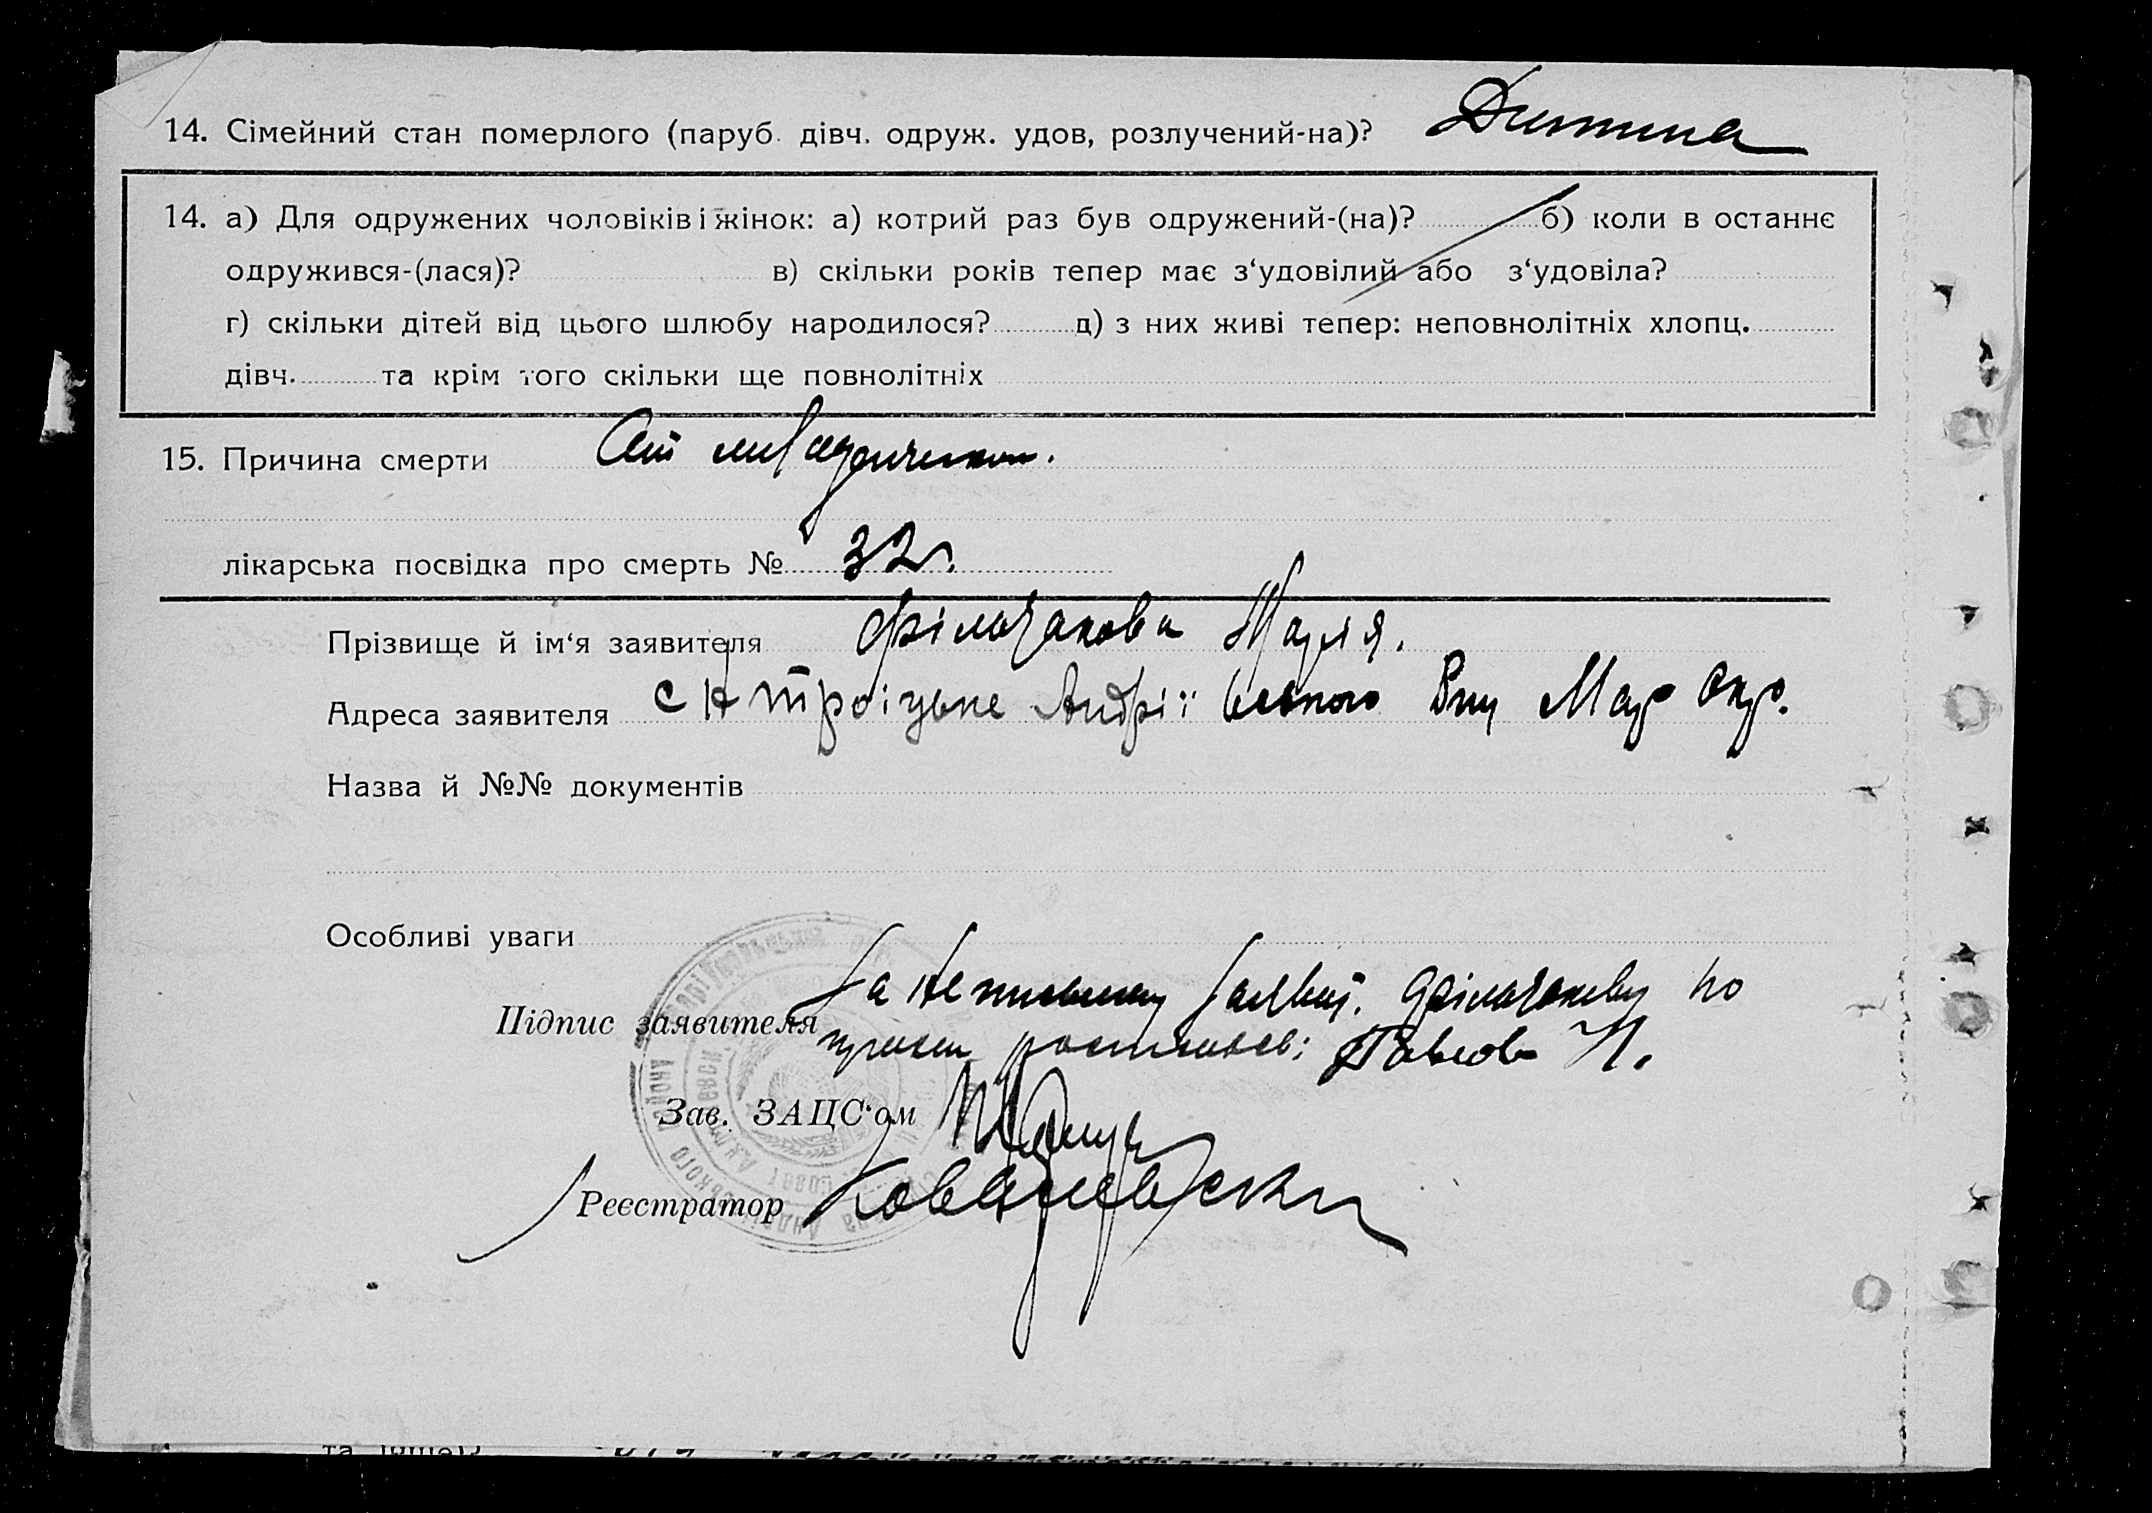 14. Сімейний стан померлого (паруб. дівч. одруж. удов, розлучений-на)? Дитина
14. а) Для одружених чоловіків і жінок: а) котрий раз був одружений-(на)? б) коли в останнє
одружився-(лася)? в) скільки років тепер має з‘удовілий або з‘удовіла?
г) скільки дітей від цього шлюбу народилося? д) з них живі тепер: неповнолітніх хлопц.
дівч. та крім того скільки ще повнолітніх
15. Причина смерти От
лікарська посвідка про смерть № 32
Прізвище й ім‘я заявителя
Адреса заявителя с Н Троіцьке Андріївського Мар Окр.
Назва й №№ документів
Особливі уваги
За заявит. по
Підпис заявителя Павлов
Зав. ЗАЦС‘ом
Реєстратор Ковалевськи